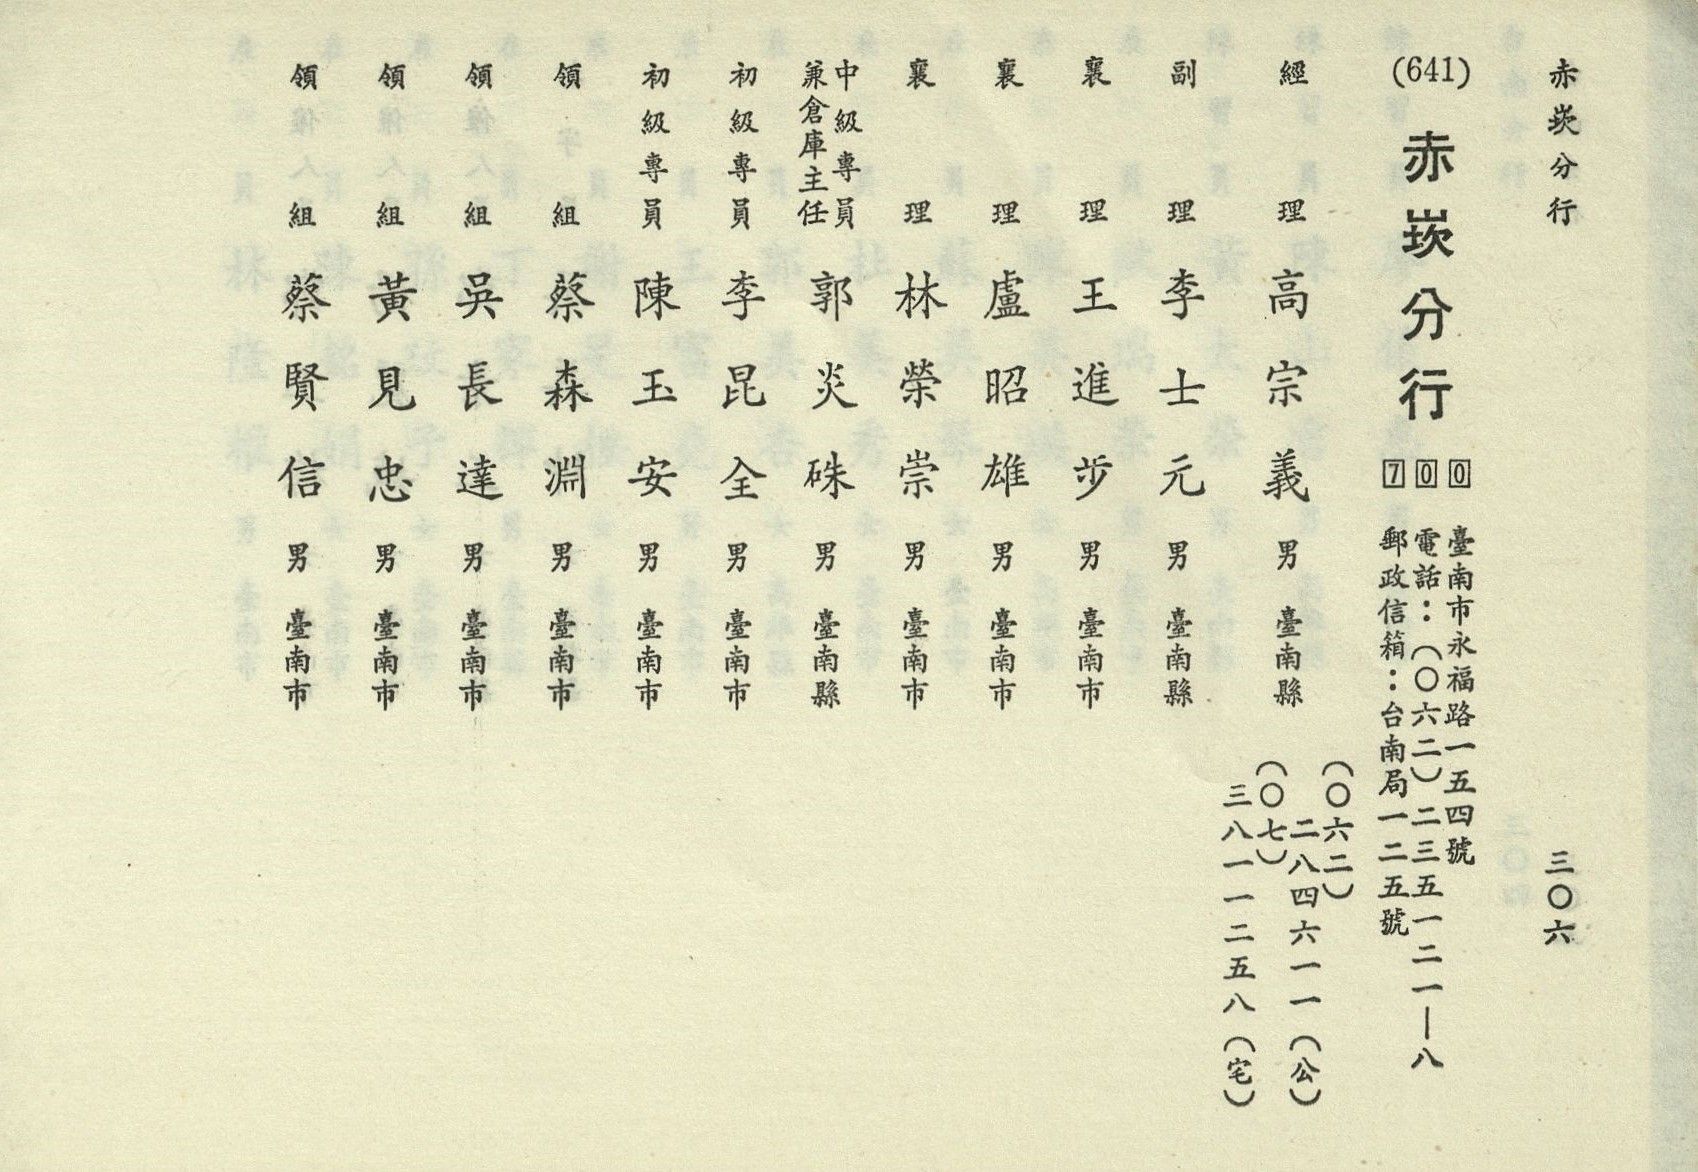 赤崁分行
三〇六
(641) 赤崁分行
700
臺南市永福路一五四號
電話：(〇六二)二三五一二一—八
郵政信箱：台南局一二五號
經理 高宗義 男 臺南縣
(〇六二)
二八四六一一(公)
(〇七)
三八一一二五八(宅)
副理 李士元 男 臺南縣
襄理 王進步 男 臺南市
襄理 盧昭雄 男 臺南市
襄理 林榮崇 男 臺南市
中級專員
兼倉庫主任 郭炎硃 男 臺南縣
初級專員 李昆全 男 臺南市
初級專員 陳玉安 男 臺南市
領組 蔡森淵 男 臺南市
領組 吳長達 男 臺南市
領組 黃見忠 男 臺南市
領組 蔡賢信 男 臺南市